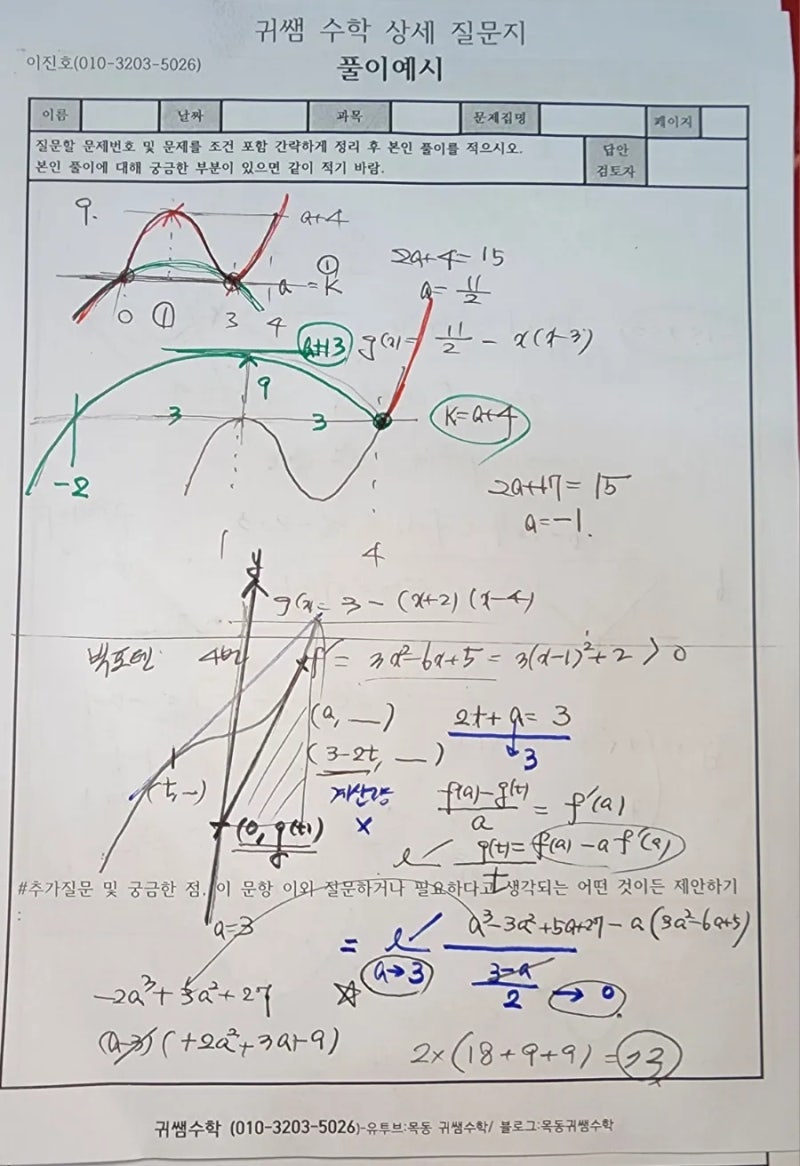 귀쌤 수학 상세 질문지
이진호(010-3203-5026)
풀이예시
이름 날짜 과목 문제집명 페이지
질문할 문제번호 및 문제를 조건 포함 간략하게 정리 후 본인 풀이를 적으시오.
본인 풀이에 대해 궁금한 부분이 있으면 같이 적기 바람.
답안
검토자
9.
a+4
a = K ①
0 ① 3 4
2a+4=15
a= 11/2
g(x)= 11/2 - x(x-3)
a+13
9
3 3
K=a+4
-2
2a+17=15
a=-1.
1 4
y
g(x)= 3-(x+2)(x-4)
벅포덴 4번 f' = 3x²-6x+5 = 3(x-1)²+2 > 0
(a, __) 2t+a=3
(3-2t, __) 3
(t, -) 계산량 x
(f(a)-g(t))/a = f'(a)
(0, g(t))
g(t)=f(a)-a f'(a)
t
#추가질문 및 궁금한 점, 이 문항 이외 질문하거나 필요하다고 생각되는 어떤 것이든 제안하기
:
a=3
= a³-3a²+5a+27-a(3a²-6a+5)
a→3 (3-a)/2 → 0
-2a³+3a²+27 ☆
(a-3)(+2a²+3a+9)
2×(18+9+9) =
귀쌤수학 (010-3203-5026)-유투브:목동 귀쌤수학/ 블로그:목동귀쌤수학